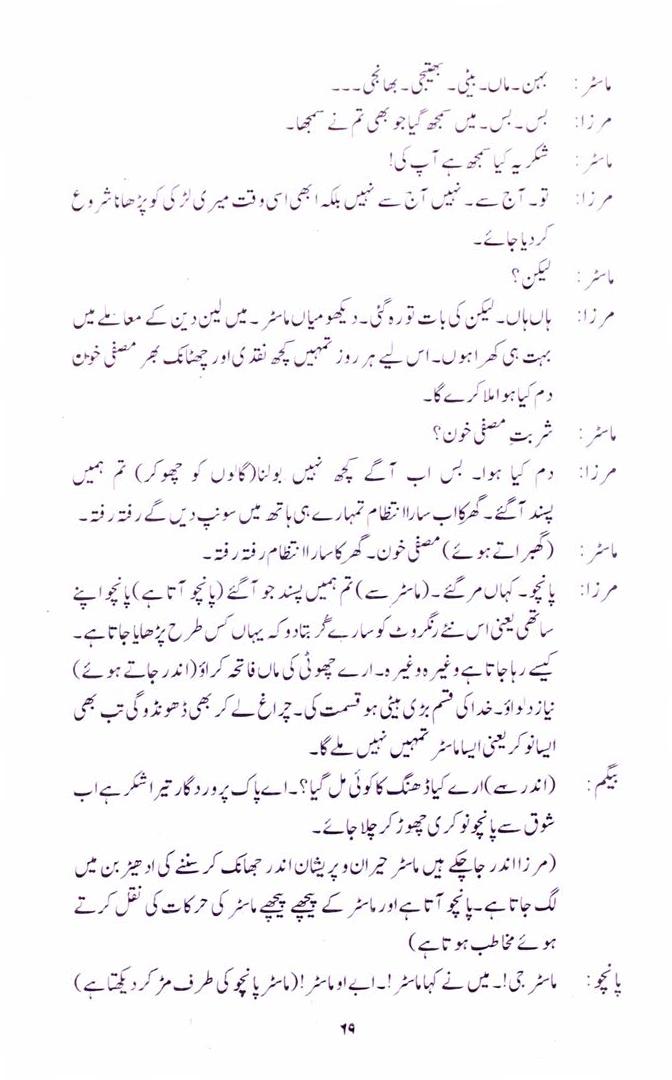 ماسٹر : بہن۔ ماں۔ بیٹی۔ بھتیجی۔ بھانجی۔۔۔
مرزا: بس۔ بس۔ میں سمجھ گیا جو بھی تم نے سمجھا۔
ماسٹر : شکریہ کیا سمجھ ہے آپ کی!
مرزا: تو۔ آج سے۔ نہیں آج سے نہیں بلکہ ابھی اسی وقت میری لڑکی کو پڑھانا شروع
کر دیا جائے۔
ماسٹر : لیکن؟
مرزا: ہاں ہاں۔ لیکن کی بات تو رہ گئی۔ دیکھو میاں ماسٹر۔ میں لین دین کے معاملے میں
بہت ہی کھرا ہوں۔ اس لیے ہر روز تمہیں کچھ نقدی اور چھٹانک بھر مصفی خون
دم کیا ہوا ملا کرے گا۔
ماسٹر : شربتِ مصفی خون؟
مرزا: دم کیا ہوا۔ بس اب آگے کچھ نہیں بولنا (گالوں کو چھوکر) تم ہمیں
پسند آگئے۔ گھر کا اب سارا انتظام تمہارے ہی ہاتھ میں سونپ دیں گے رفتہ رفتہ۔
ماسٹر : (گھبراتے ہوئے) مصفی خون۔ گھر کا سارا انتظام رفتہ رفتہ۔
مرزا: پانچو۔ کہاں مر گئے۔ (ماسٹر سے) تم ہمیں پسند جو آگئے (پانچو آتا ہے) پانچو اپنے
ساتھی یعنی اس نئے رنگروٹ کو سارے گُر بتادو کہ یہاں کس طرح پڑھایا جاتا ہے۔
کیسے رہا جاتا ہے وغیرہ وغیرہ۔ ارے چھوٹی کی ماں فاتحہ کراؤ (اندر جاتے ہوئے)
نیاز دلواؤ۔ خدا کی قسم بڑی بیٹی ہو قسمت کی۔ چراغ لے کر بھی ڈھونڈوگی تب بھی
ایسا نوکر یعنی ایسا ماسٹر تمہیں نہیں ملے گا۔
بیگم: (اندر سے) ارے کیا ڈھنگ کا کوئی مل گیا؟۔ اے پاک پروردگار تیرا شکر ہے اب
شوق سے پانچو نوکری چھوڑ کر چلا جائے۔
(مرزا اندر جاچکے ہیں ماسٹر حیران و پریشان اندر جھانک کر سننے کی ادھیڑ بن میں
لگ جاتا ہے۔ پانچو آتا ہے اور ماسٹر کے پیچھے پیچھے ماسٹر کی حرکات کی نقل کرتے
ہوئے مخاطب ہوتا ہے)
پانچو: ماسٹر جی!۔ میں نے کہا ماسٹر!۔ ابے او ماسٹر! (ماسٹر پانچو کی طرف مڑ کر دیکھتا ہے)
۶۹